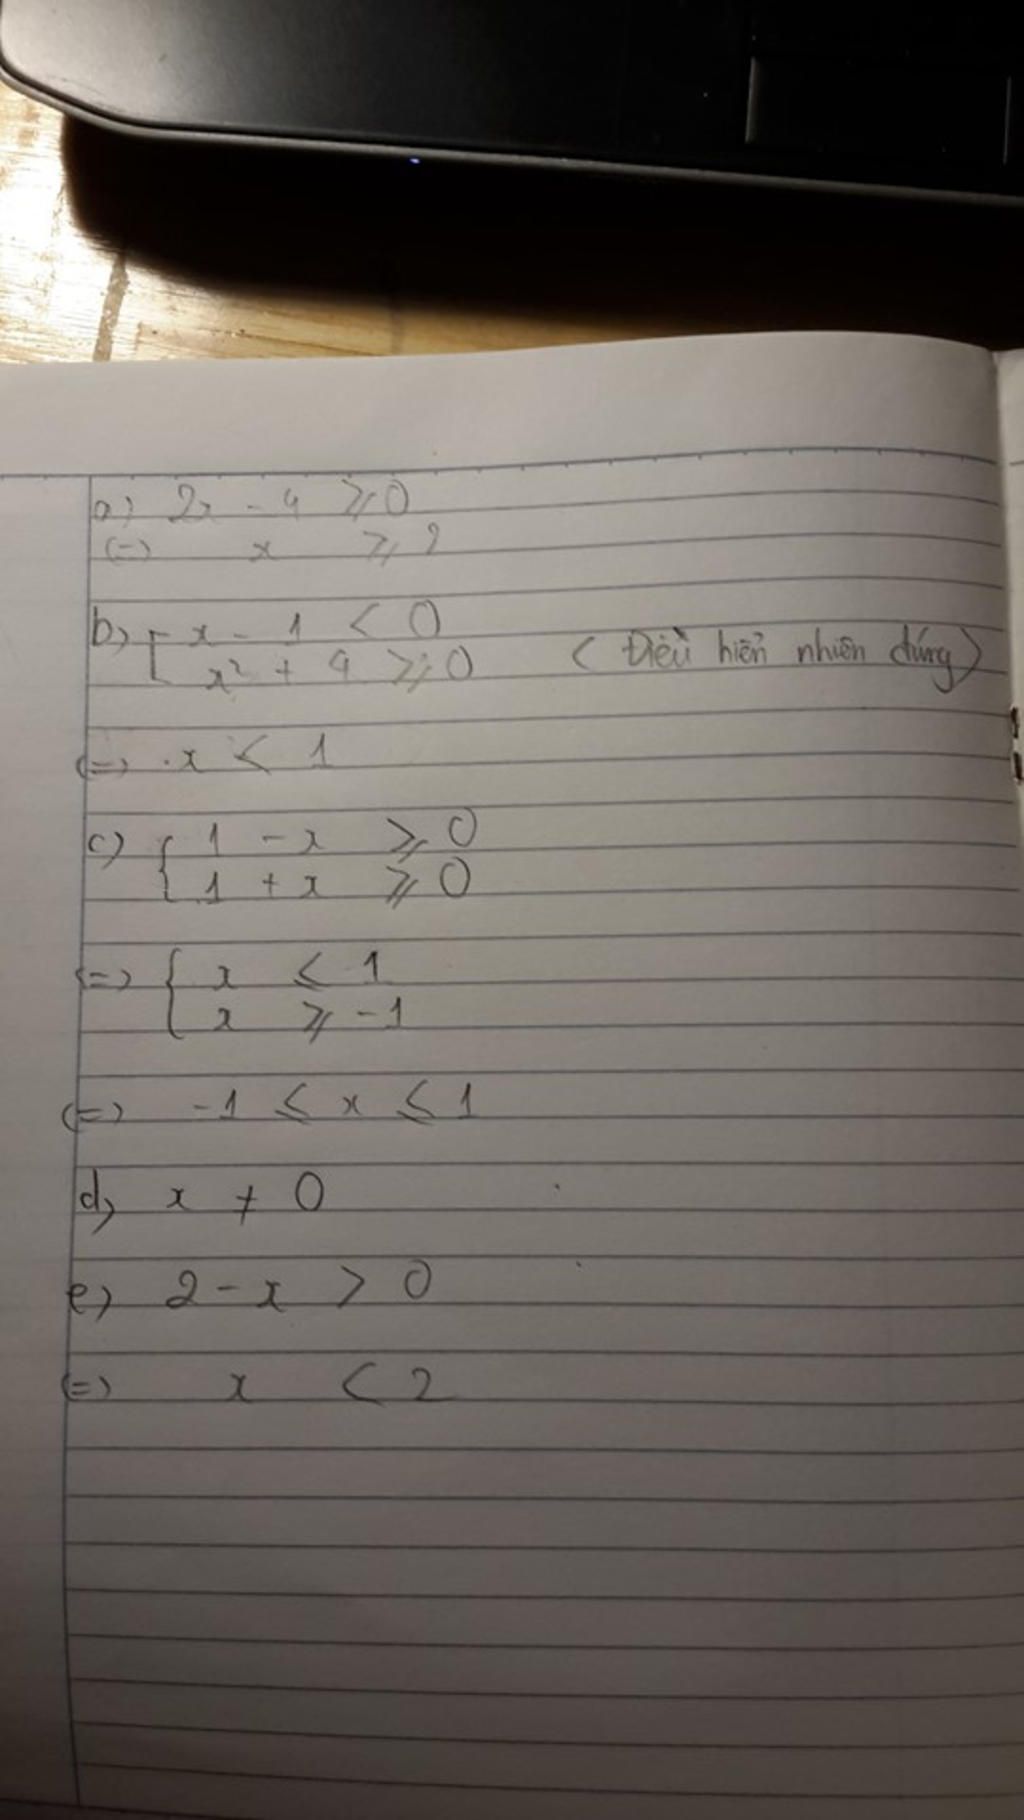 a) 2x - 4 ≥ 0
(=) x ≥ 2
b) [ x - 1 < 0
x² + 4 ≥ 0 (Điều hiển nhiên đúng)
(=) x < 1
c) { 1 - x ≥ 0
1 + x ≥ 0
(=) { x ≤ 1
x ≥ -1
(=) -1 ≤ x ≤ 1
d) x ≠ 0
e) 2 - x > 0
(=) x < 2